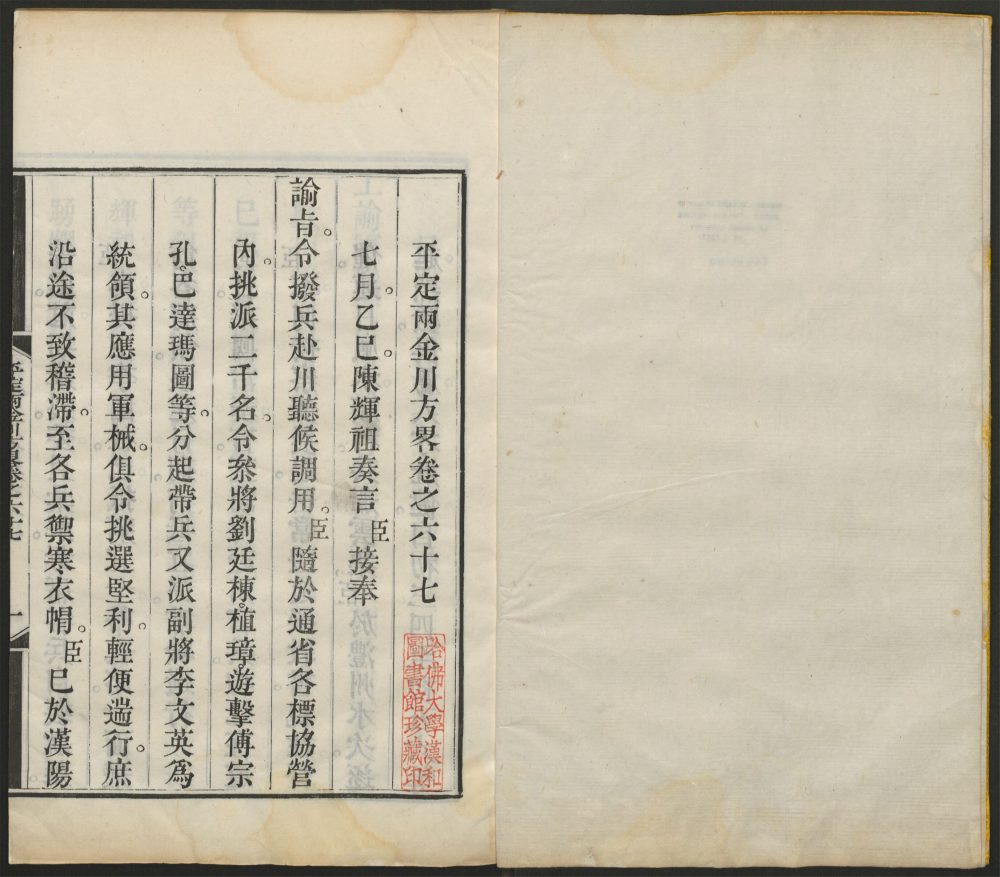 平定兩金川方畧卷之六十七
七月乙巳。陳輝祖奏言臣接奉
諭旨。令撥兵赴川聽候調用。臣隨於通省各標協營
內。挑派二千名。令叅將劉廷棟。植璋。遊擊傅宗
孔。巴達瑪圖等。分起帶兵。又派副將李文英爲
統領。其應用軍械。俱令挑選堅利。輕便遄行。庶
沿途不致稽滯。至各兵禦寒衣帽。臣已於漢陽
哈佛大學漢和
圖書館珍藏印